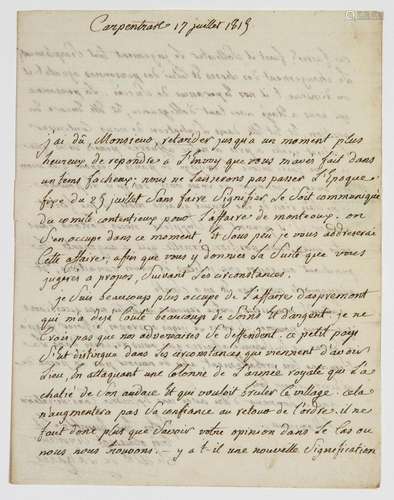 Carpentras 17 juillet 1815
j'ai dû, Monsieur, retarder jusqu'a un moment plus
heureux de repondre a l'Envoy que vous m'avés fait dans
un tems facheux; nous ne laisserons pas passer l'Epoque
fixe du 25 juillet Sans faire Signifier Le Soit communiqué
du comité contentieux pour l'affaire de monteoux. on
S'en occupe dans ce moment, Et Sous peu je vous addresserai
Cette affaire, afin que vous y donnies La Suite que vous
jugerés a propos, Suivant Les circonstances.
je Suis Beaucoup plus occupé de L'affaire d'aspremont
qui m'a deja Couté beaucoup de Soins Et d'argent je ne
Crois pas que nos adversaires Se deffendent. ce petit pays
S'est distingué dans Les circonstances qui viennent d'avoir
Lieu, En attaquant une colonne de L'armée royale qui L'a
chatié de Son audace Et qui vouloit bruler Le village. cela
n'augmentera pas Sa confiance au retour de L'ordre. il ne
faut donc plus que Savoir votre opinion dans Le Cas ou
nous nous trouvons. — y a t-il une nouvelle Signification